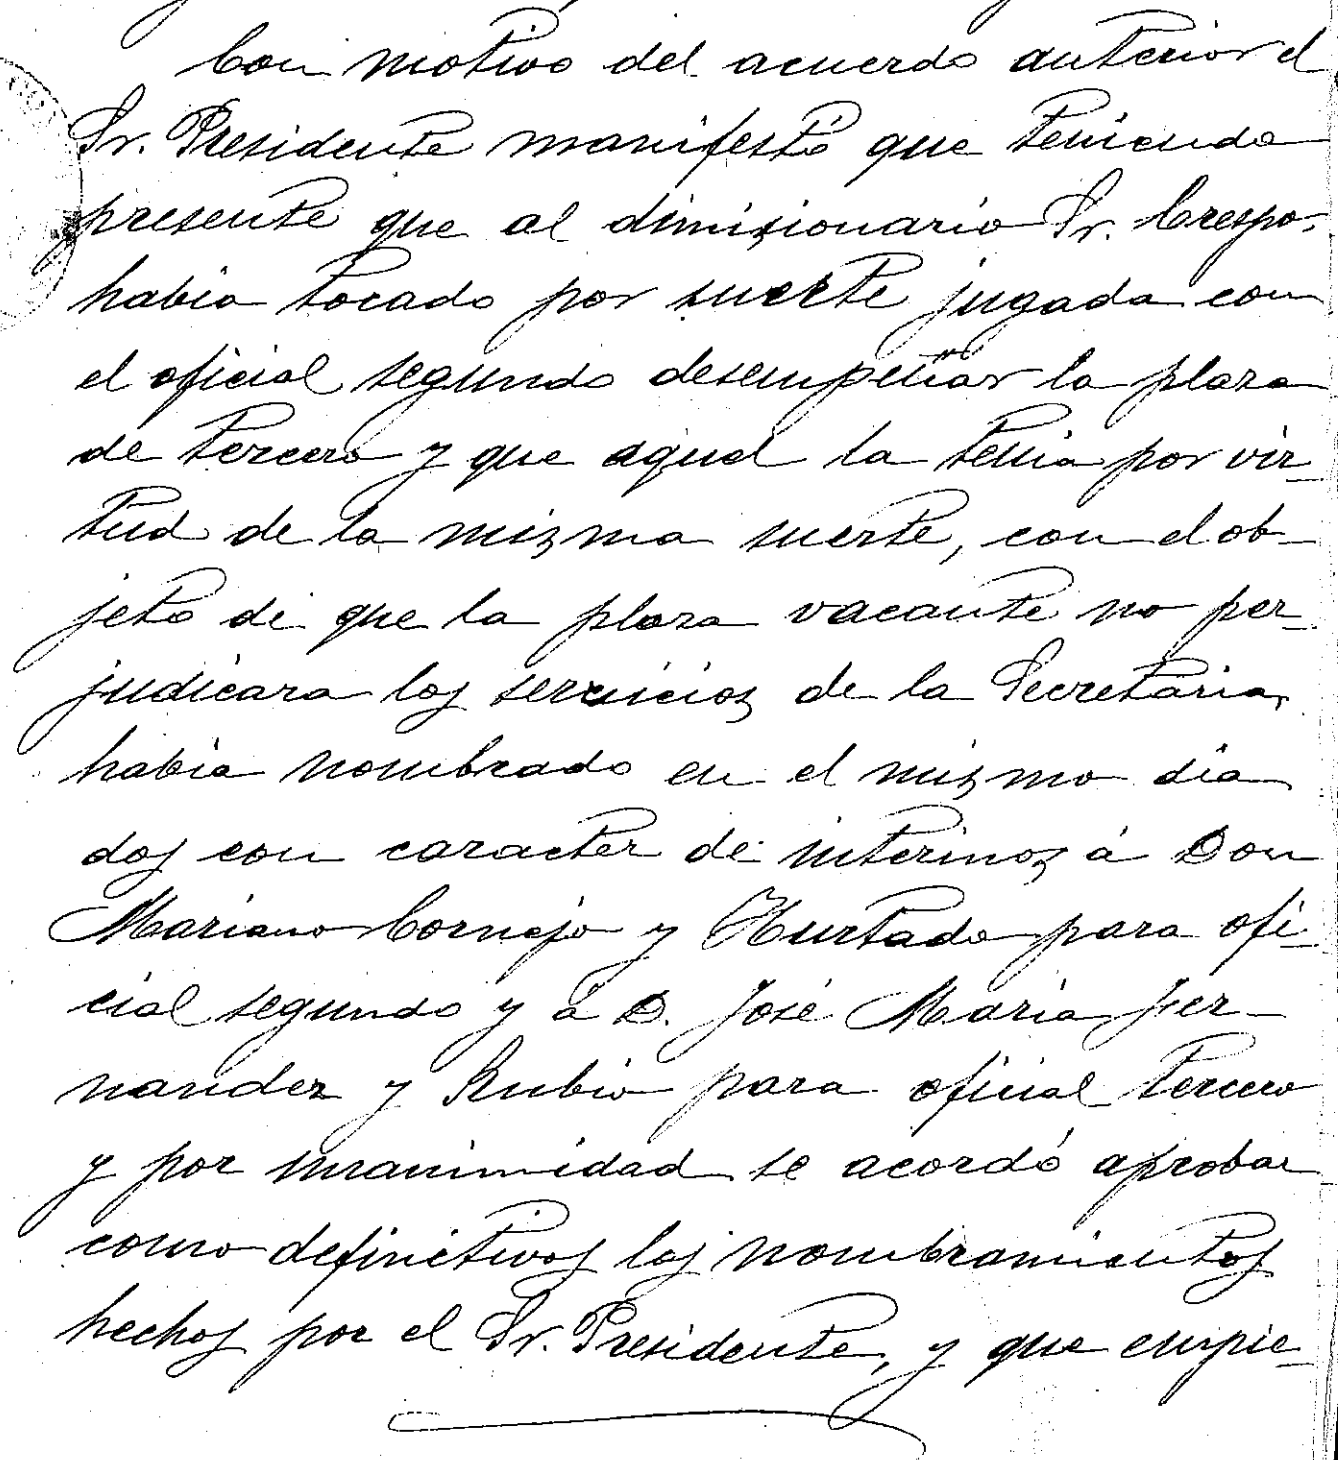 Con motivo del acuerdo anterior el
Sr. Presidente manifestó que teniendo
presente que al dimisionario Sr. Crespo,
habia tocado por suerte jugada con
el oficial segundo desempeñar la plaza
de tercero y que aquel la tenia por vir-
tud de la misma suerte, con el ob-
jeto de que la plaza vacante no per-
judicara los servicios de la Secretaria,
habia nombrado en el mismo dia
dos con caracter de interinos á Don
Mariano Cornejo y Hurtado para ofi-
cial segundo y á D. José Maria Fer-
nandez y Rubio para oficial tercero
y por unanimidad se acordó aprobar
como definitivos los nombramientos
hechos por el Sr. Presidente, y que empie-